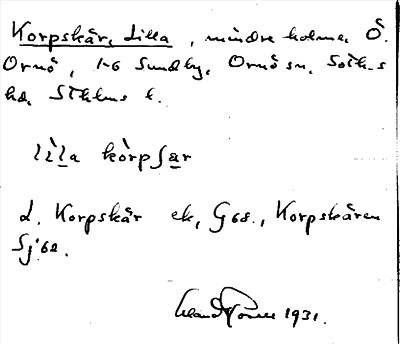 Korpskär, Lilla, mindre holme, Ö.
Ornö, 1-6 Sundby, Ornö sn, Soth-s
hd, Sthlms l.
lìl̲a kòrpʃa̲r
L. Korpskär ek, G68., Korpskären
Sj:62.
1931.